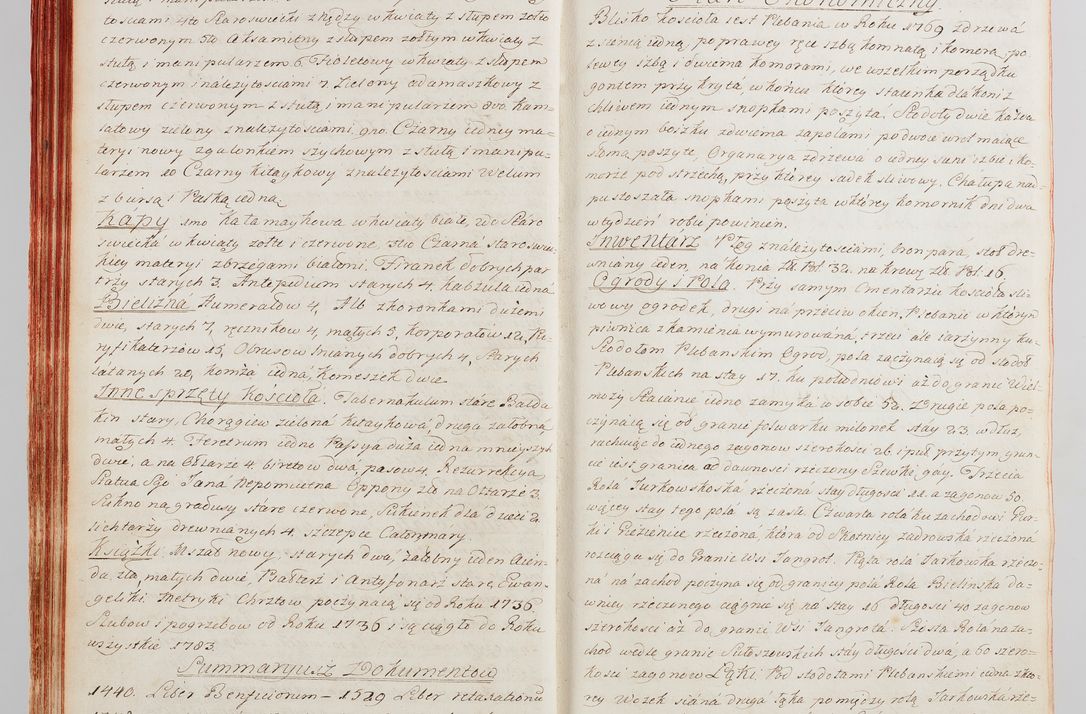 tosciami 4to Staroswiecki z kędzy w kwiaty z stupem zołto
czerwonym 5to Aksamitny z stupem zołtym w kwiaty z
stułą i manipularzem 6. Fioletowy w kwiaty z stupem
czerwonym i należytosciami 7 Zielony adamaszkowy z
stupem czerwonym z stułą i manipularzem 8vo. Kam=
latowy zielony z należytosciami, 9no. Czarny iedney ma=
teryi nowy z galonkiem szychowym z stułą i manipu=
larzem 10 Czarny kitaykowy z należytosciami Welum
z bursą i Paską iedną
Kapy 1mo Katamaykowa w kwiaty białe, 2do Staro
swiecka w kwiaty zołte i czerwone, 3tio Czarna staroswie=
ckiey materyi z brzegami białemi. Firanek dobrych par
trzy starych 3. Antepedium starych 4. kabzula iedna
Bielizna Humerałow 4, Alb z koronkami dużemi
dwie, starych 7, ręcznikow 4, małych 5, korporałow 12, Pu=
ryfikaterzow 15, Obrusow lnianych dobrych 4, Starych
łatanych 20, komża iedna, komeszek dwie
Inne sprzęty Kościoła. Tabernakulum stare Balda
kin stary, Chorągiew zielona kitaykowa, druga żałobna
małych 4. Feretrum iedno Passya duża iedna mnieyszych
dwie, a na Ołtarze 4. biretow dwa, pasow 4, Rezurrekcya
Statua Sgo Jana Nepomucena Oppony złe na Ołtarze 3.
Sukno na gradusy stare czerwone, Sukienek dla dzieci 2.
lichtarzy drewnianych 4, szczepce Calonmary.
Książki. Mszał nowy, starych dwa, żałobny ieden Agien=
da, zła, małych dwie, Psałterz i Antyfonarz stare, Ewan=
geliki. Metryki Chrztow poczynaią się od Roku 1736
Szlubow i pogrzebow od Roku 1736 i są ciągłe do Roku
wszystkie 1783.
Summaryusz Dokumentow
1440. Liber Beneficiorum – 1529 Liber retaxationũ
Stan Ekonomiczny
Blisko kościoła iest Plebania w Roku 1769 z drzewa
z sienią iedną, po prawey ręce izbą komnatą i komorą, po
lewey izbą i dwiema komorami, we wszelkim porządku
gontem przykryta, w końcu ktorey staienka dla koni z
chliwem iednym snopkami poszyta, Stodoły dwie każda
o iednym boszku z dwiema zapolami podwoie wrot maiące
słomą poszyte, Organarya z drzewa o iedney sieni izbie i ko=
morze pod strzechą, przy ktorey sadek sliwowy. Chałupa nad=
pustoszała snopkami poszyta w ktorey komornik dni dwa
w tydzień robić powinien.
Inwentarz Pług z należytosciami, bron para, stoł dre=
wniany ieden, na konia Zł. Pol. 32. na krowę Zł. Pol. 16.
Ogrody i Pola. Przy samym Cmentarzu kościoła śli=
wowy ogrodek, drugi na przeciw okien, Plebanie w ktorym
piwnica z kamienia wymurowana, trzeci ale iarzynny ku
Stodołom Plebanskim Ogrod, pola zaczynaią się od Stodoł
Plebańskich na stay 17. ku południowi aż do granic Wiel=
moży Staianie iedno zamyka w sobie 52. Drugie pola po=
czynaią się od granic folwarku milonek stay 23. wdłuż,
rachuiąc do iednego zagonow szerokosci 26. i puł, przytym grun=
cie iest granica od dawnosci rzeczony Szewki gay. Trzecia
Rola Jurkowskoska rzeczona stay długosci 22. a zagonow 50.
więcey stay tego pola są zasłe. Czwarta rola ku zachodowi Pur=
ki i Piezienie rzeczona, ktora od Skotnicy zadrowska rzeczona
rozciąga się do Granic Wsi Jangrot. Piąta rola Jarkowska rzeczo=
na na zachod poczyna się od granicy pola Rola Bielinska da=
wniey rzeczonego ciągnie się na stay 16 długosci 40 zagonow
szerokosci aż do granic Wsi Jangrota. Szosta Rola na za=
chod wedle granic Sułoszowskich stay długosci dwa, a 60 szero=
kosci zagonow Łąki. Pod stodołami Plebańskiemi iedna z kto=
rey Wozek siana druga łąka pomiędzy rolą Jarkowska rze=